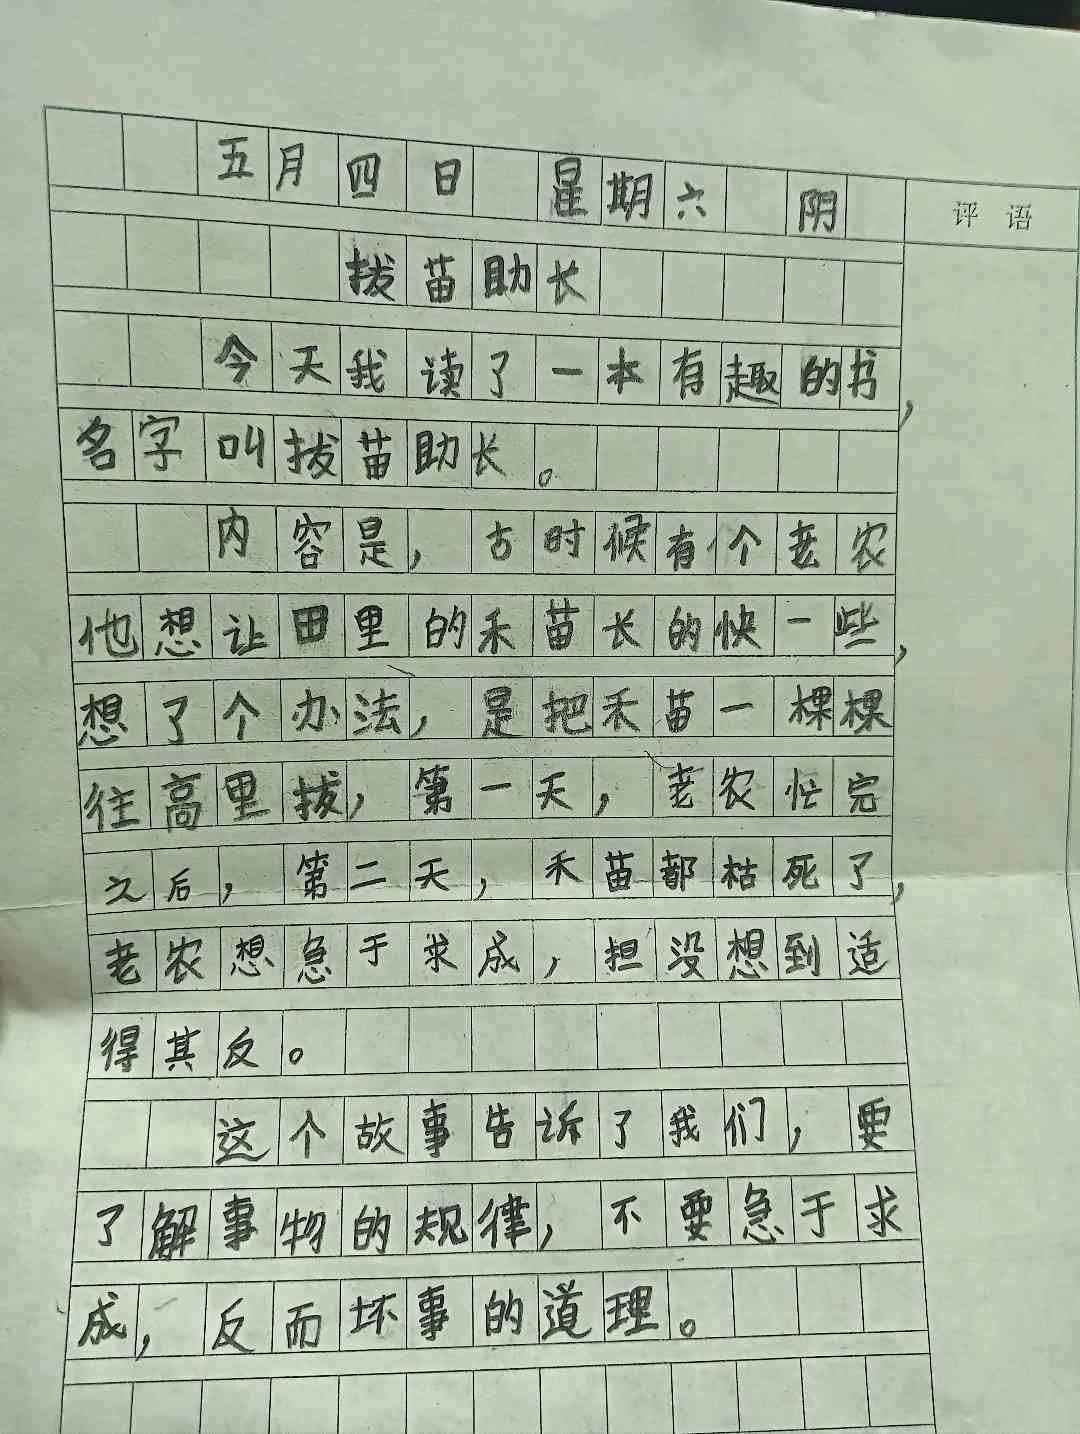 五月四日 星期六 阴
评语
拔苗助长
今天我读了一本有趣的书，
名字叫拔苗助长。
内容是，古时候有个老农
他想让田里的禾苗长的快一些，
想了个办法，是把禾苗一棵棵
往高里拔，第一天，老农忙完
之后，第二天，禾苗都枯死了，
老农想急于求成，担没想到适
得其反。
这个故事告诉了我们，要
了解事物的规律，不要急于求
成，反而坏事的道理。